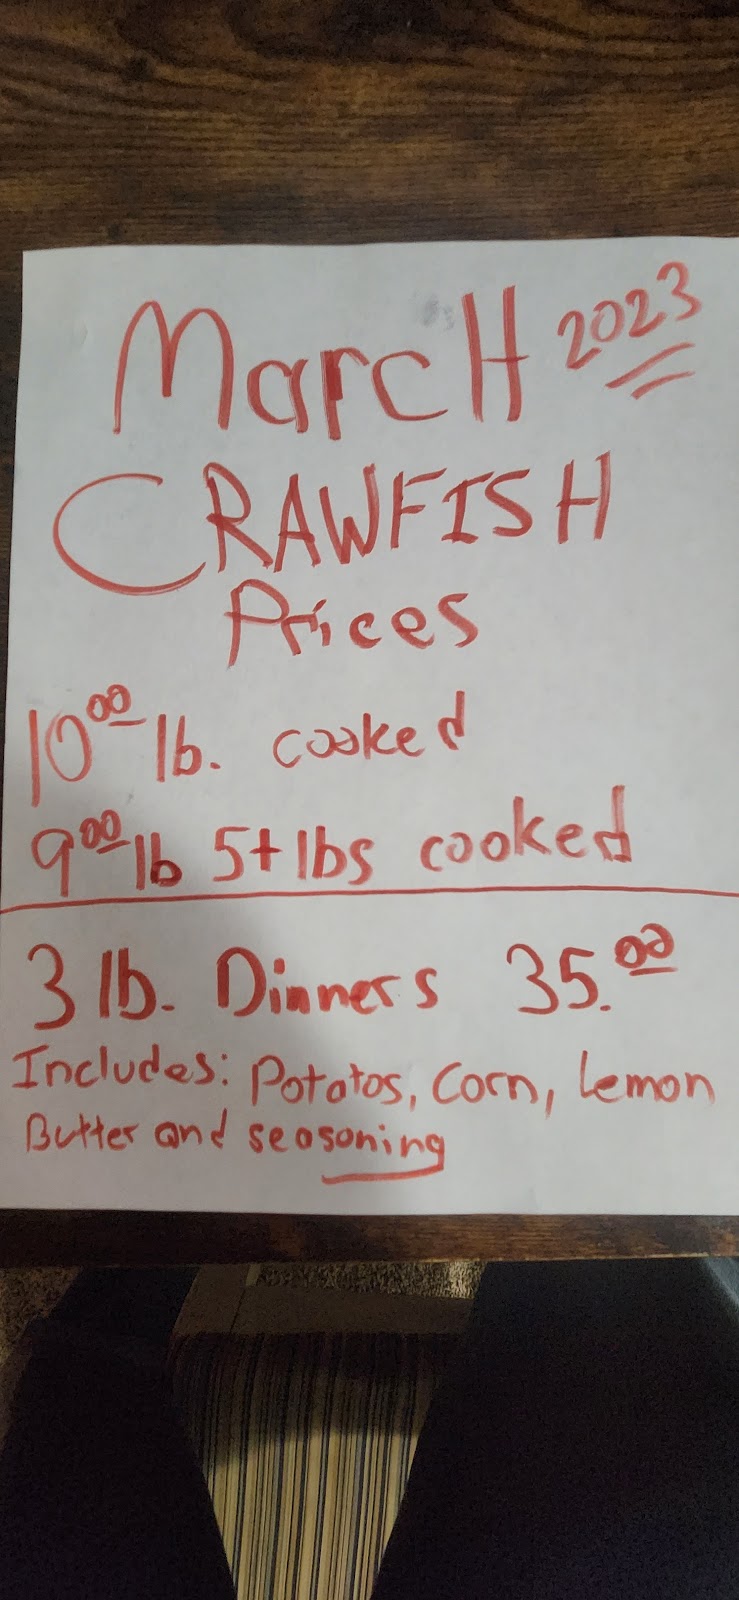 MarcH 2023
CRAWFISH
Prices
10.00 lb. cooked
9.00 lb 5+lbs cooked
3 lb. Dinners 35.00
Includes: Potatos, Corn, Lemon
Butter and seasoning